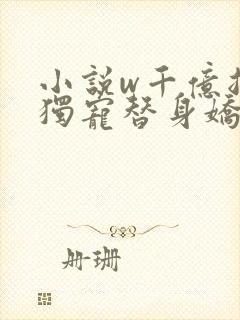 小説w千億
獨寵替身嬌
册珊